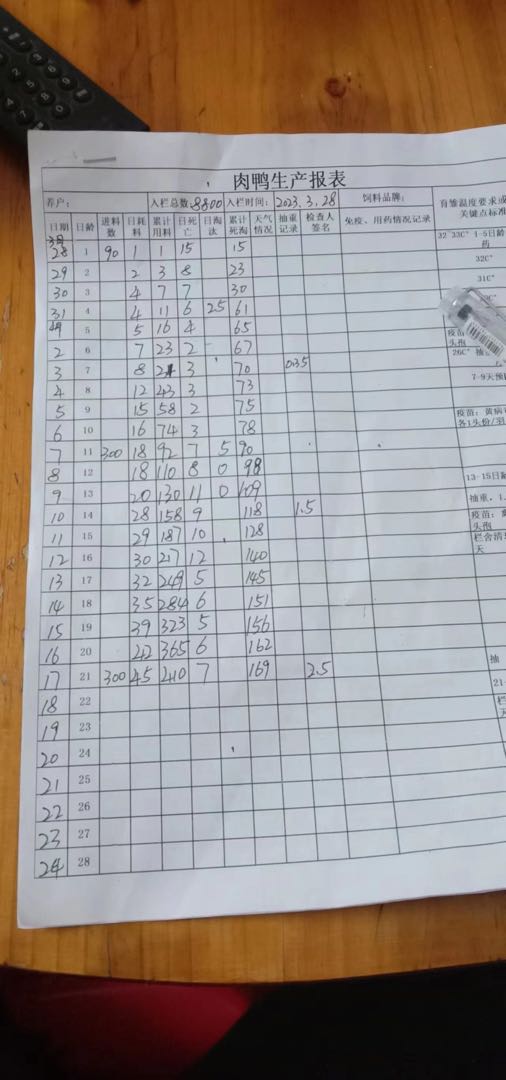 肉鸭生产报表
养户: 入栏总数: 8800 入栏时间: 2023.3.28 饲料品牌: 育雏温度要求或 关键点标准
日期 日龄 进料数 日耗料 累计用料 日死亡 日淘汰 累计死淘 天气情况 抽重记录 检查人签名 免疫、用药情况记录
3月 28 1 90 1 1 15 15 32-33C° 1-5日龄 药
29 2 2 3 8 23 32C°
30 3 4 7 7 30 31C°
31 4 4 11 6 25 61
5 5 16 4 65 疫苗 头孢
2 6 7 23 2 67
3 7 8 3 70 035 26C° 抽
4 8 12 43 3 73 7-9天预
5 9 15 58 2 75
6 10 16 74 3 78 疫苗:黄病 各1头份/羽
7 11 300 18 92 7 5 90
8 12 18 110 8 0 98
9 13 20 130 11 0 109 13-15日
10 14 28 158 9 118 1.5 抽重,1.
11 15 29 187 10 128 疫苗: 头孢
12 16 30 217 12 140 栏舍清 天
13 17 32 249 5 145
14 18 35 284 6 151
15 19 39 323 5 156
16 20 42 365 6 162
17 21 300 45 410 7 169 2.5 抽
18 22 21-
19 23 栏 天
20 24
21 25
22 26
23 27
24 28